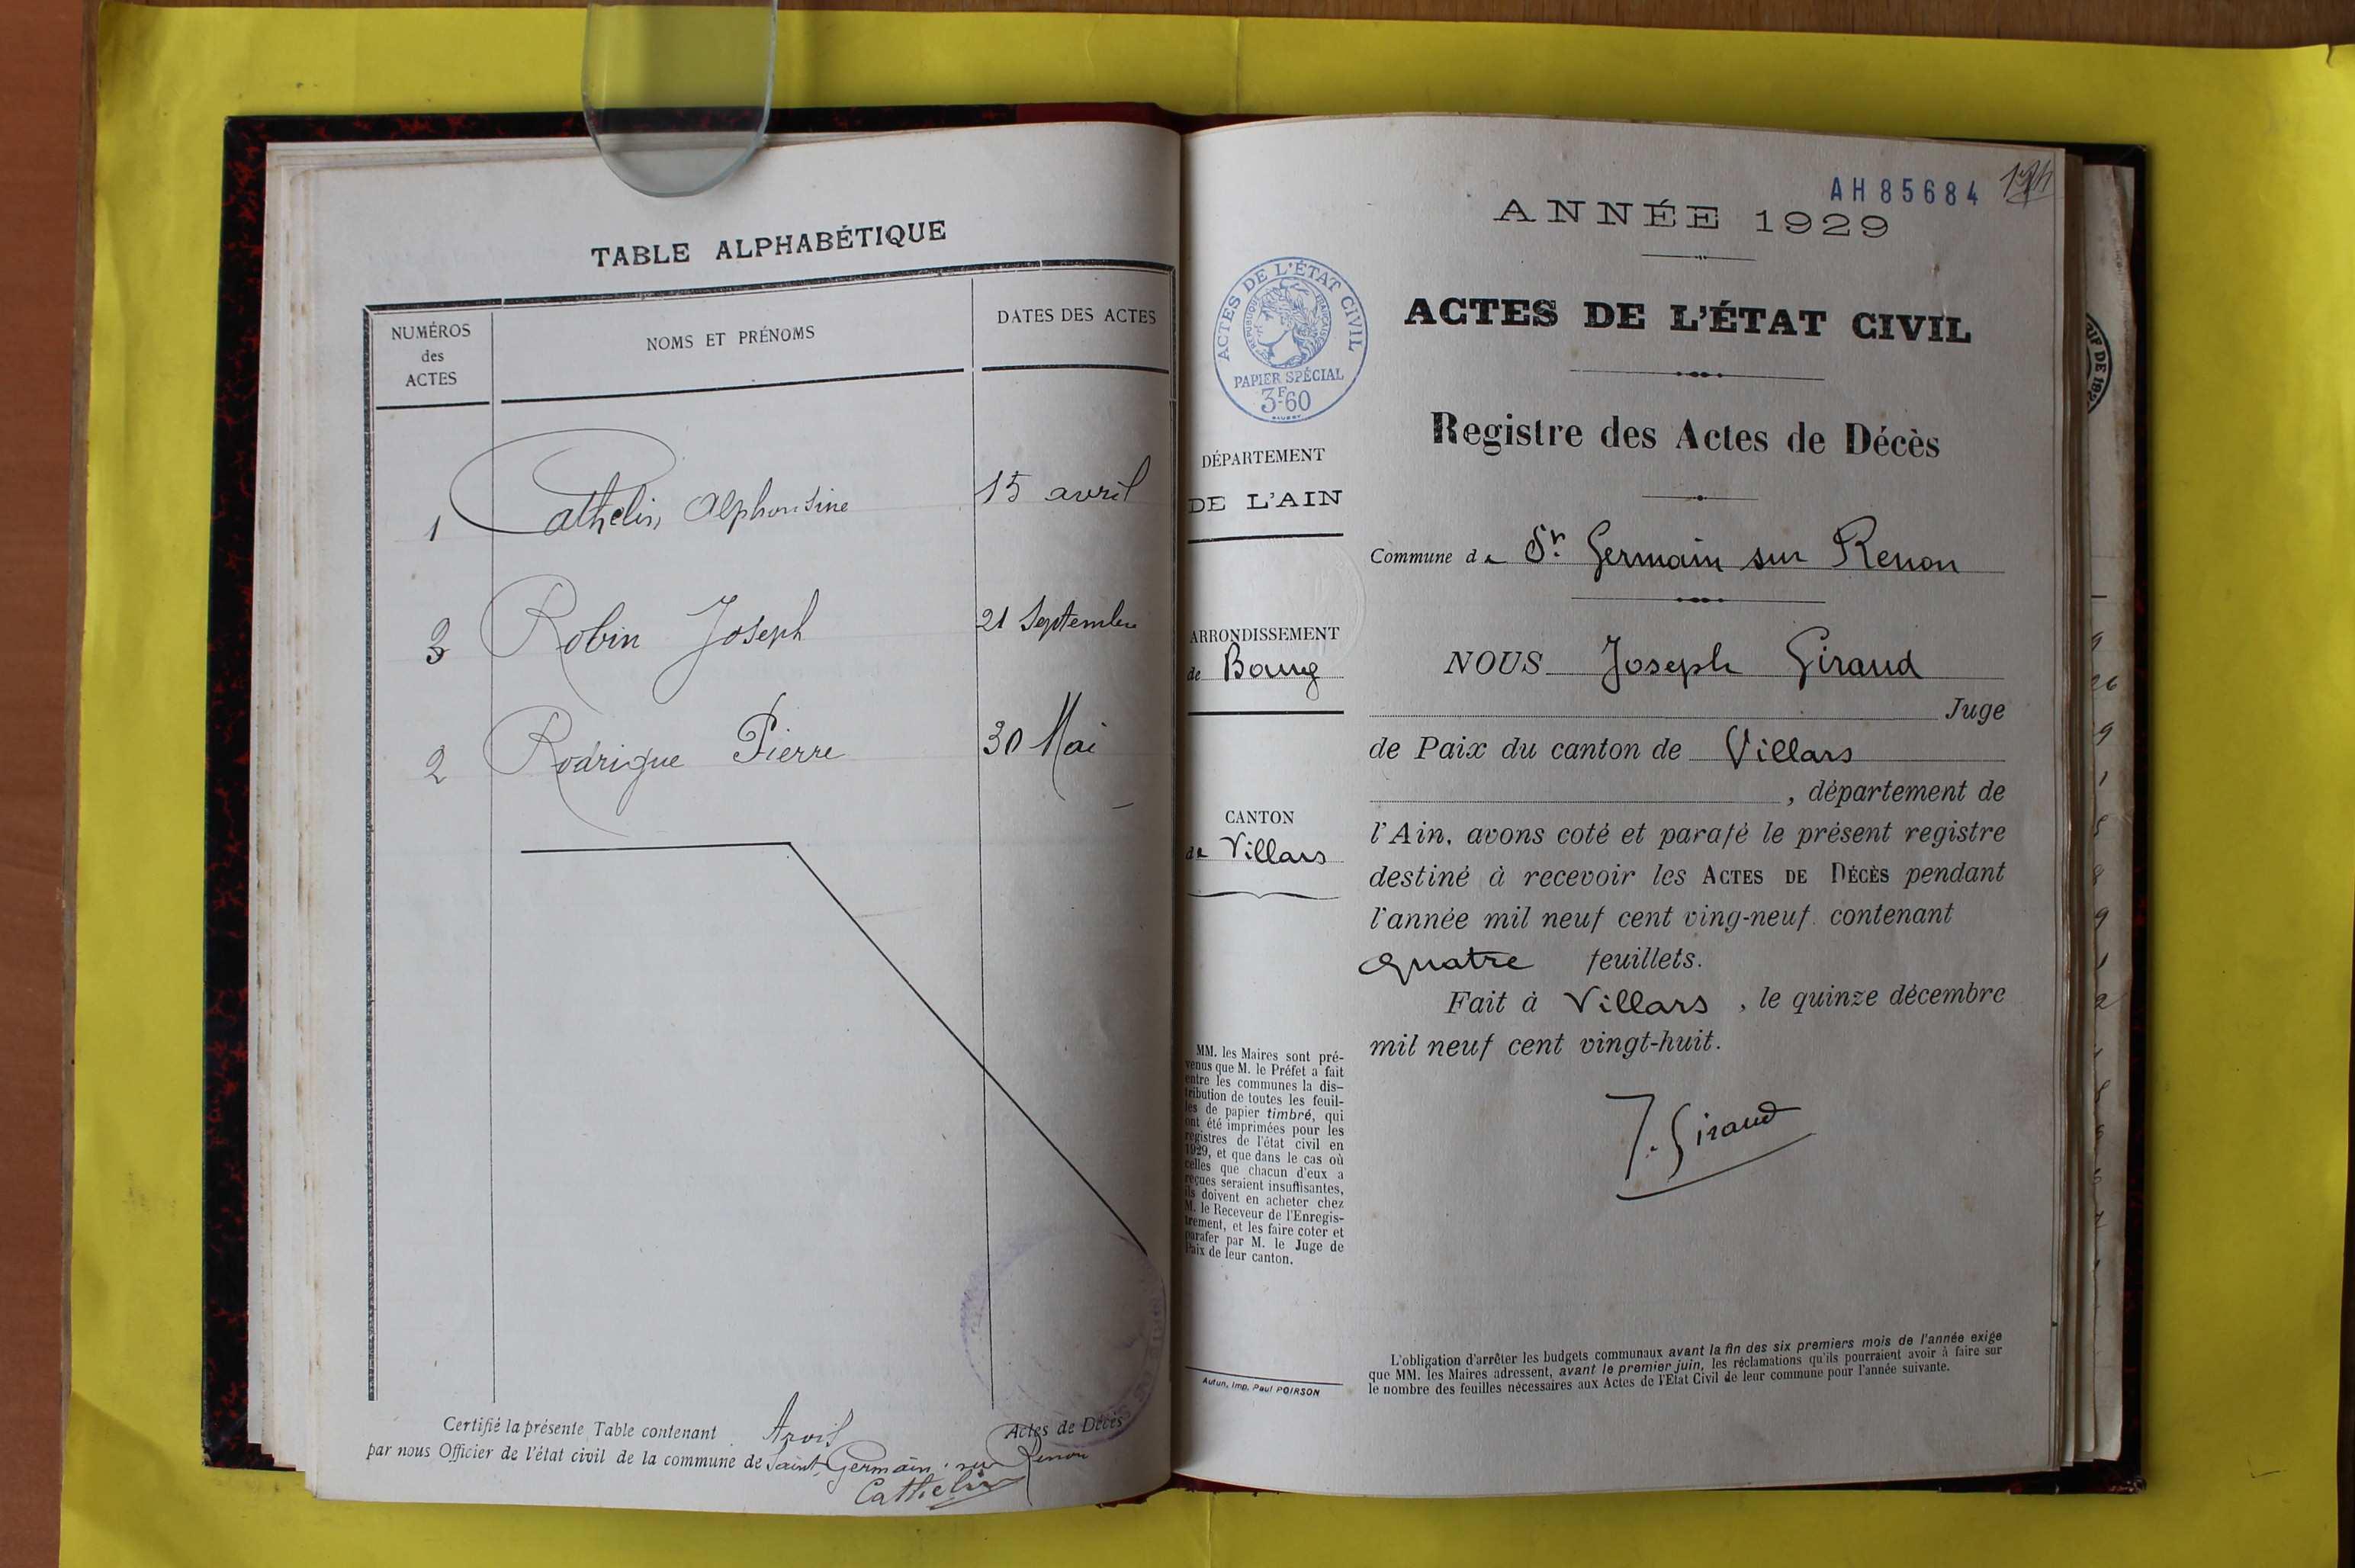 TABLE ALPHABÉTIQUE
NUMÉROS
des
ACTES
NOMS ET PRÉNOMS
DATES DES ACTES
1 Cathelin Alphonsine 15 avril
3 Robin Joseph 21 Septembre
2 Rodrigue Pierre 30 Mai
Certifié la présente Table contenant trois Actes de Décès
par nous Officier de l'état civil de la commune de Saint Germain sur Renon
Cathelin
AH 85684
ANNÉE 1929
ACTES DE L'ÉTAT CIVIL
RÉPUBLIQUE FRANÇAISE
PAPIER SPÉCIAL
3F60
ACTES DE L'ÉTAT CIVIL
Registre des Actes de Décès
DÉPARTEMENT
DE L'AIN
Commune de St Germain sur Renon
ARRONDISSEMENT
de Bourg
CANTON
de Villars
NOUS Joseph Giraud
Juge
de Paix du canton de Villars
, département de
l'Ain, avons coté et parafé le présent registre
destiné à recevoir les ACTES DE DÉCÈS pendant
l'année mil neuf cent ving-neuf contenant
quatre feuillets.
Fait à Villars, le quinze décembre
mil neuf cent vingt-huit.
J. Giraud
MM. les Maires sont pré-
venus que M. le Préfet a fait
entre les communes la dis-
tribution de toutes les feuil-
les de papier timbré, qui
ont été imprimées pour les
registres de l'état civil en
1929, et que dans le cas où
celles que chacun d'eux a
reçues seraient insuffisantes,
ils doivent en acheter chez
M. le Receveur de l'Enregis-
trement, et les faire coter et
parafer par M. le Juge de
Paix de leur canton.
Autun, Imp. Paul POIRSON
L'obligation d'arrêter les budgets communaux avant la fin des six premiers mois de l'année exige
que MM. les Maires adressent, avant le premier juin, les réclamations qu'ils pourraient avoir à faire sur
le nombre des feuilles nécessaires aux Actes de l'Etat Civil de leur commune pour l'année suivante.